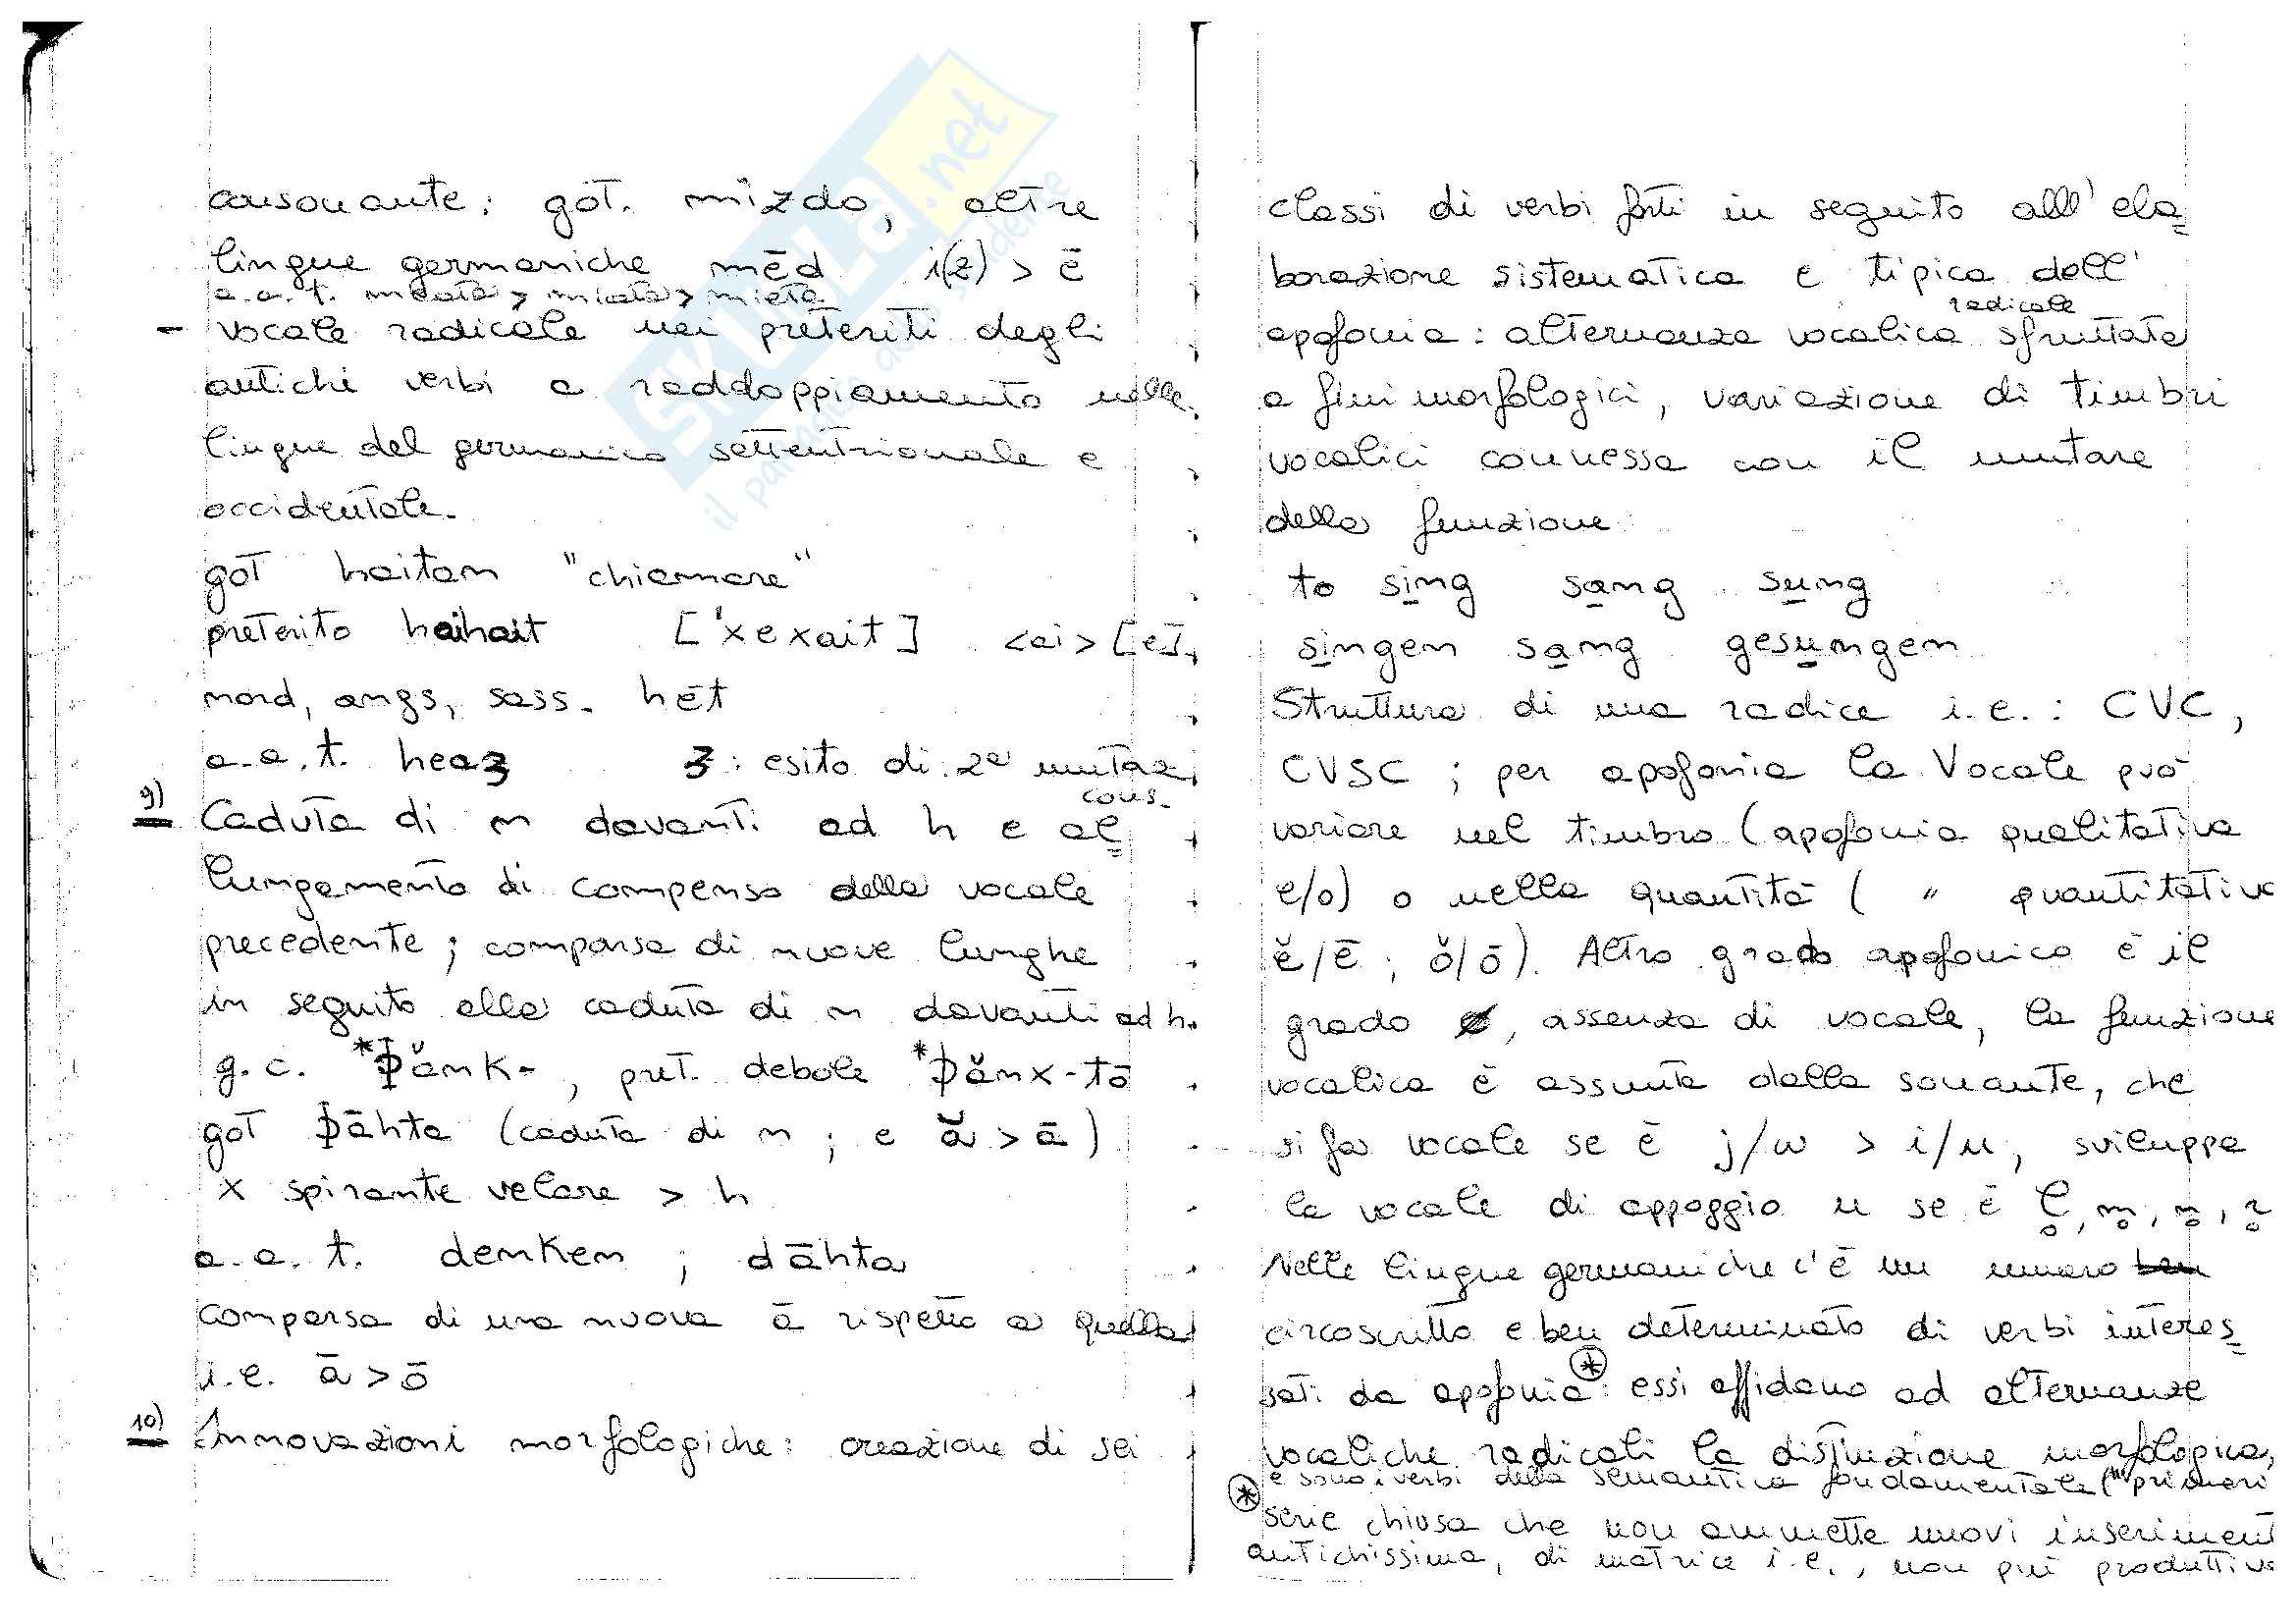 consonante: got. mizdo, altre
lingue germaniche mēd i(z) > ē
a.a.t. meata > miata > mieta
- vocale radicale nei preteriti degli
antichi verbi a raddoppiamento nelle
lingue del germanico settentrionale e
occidentale.
got haitan "chiamare"
preterito haihait ['xexait] <ai> [e]
nord, angs, sass. hēt
a.a.t. heaz z: esito di 2a mutaz.
cons.
9) Caduta di n davanti ad h e al=
lungamento di compenso della vocale
precedente; comparsa di nuove lunghe
in seguito alla caduta di n davanti ad h.
g.c. *þănk-, pret. debole *þănx-tō
got þāhta (caduta di n; e ă > ā)
x spirante velare > h
a.a.t. denken ; dāhta
comparsa di una nuova ā rispetto a quella
i.e. ā > ō
10) Innovazioni morfologiche: creazione di sei
classi di verbi forti in seguito all'ela=
borazione sistematica e tipica dell'
radicale
apofonia: alternanza vocalica sfruttata
a fini morfologici, variazione di timbri
vocalici connessa con il mutare
della funzione
to sing sang sung
singen sang gesungen
Struttura di una radice i.e.: CVC,
CVSC ; per apofonia la Vocale può
variare nel timbro (apofonia qualitativa
e/o) o nella quantità ( " quantitativa
ĕ/ē, ŏ/ō). Altro grado apofonico è il
grado ø, assenza di vocale, la funzione
vocalica è assunta dalla sonante, che
si fa vocale se è j/w > i/u, sviluppa
la vocale di appoggio u se è l̥, m̥, n̥, r̥
Nelle lingue germaniche c'è un numero ben
circoscritto e ben determinato di verbi interes=
sati da apofonia(*): essi affidano ad alternanze
vocaliche radicali la distinzione morfologica,
e sono i verbi della semantica fondamentale ("primari
(*) serie chiusa che non ammette nuovi inseriment
antichissima, di matrice i.e., non più produttiva